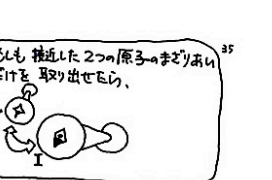 もしも 接近した 2つの原子のまざりあい
だけを 取り出せたら、
35
I